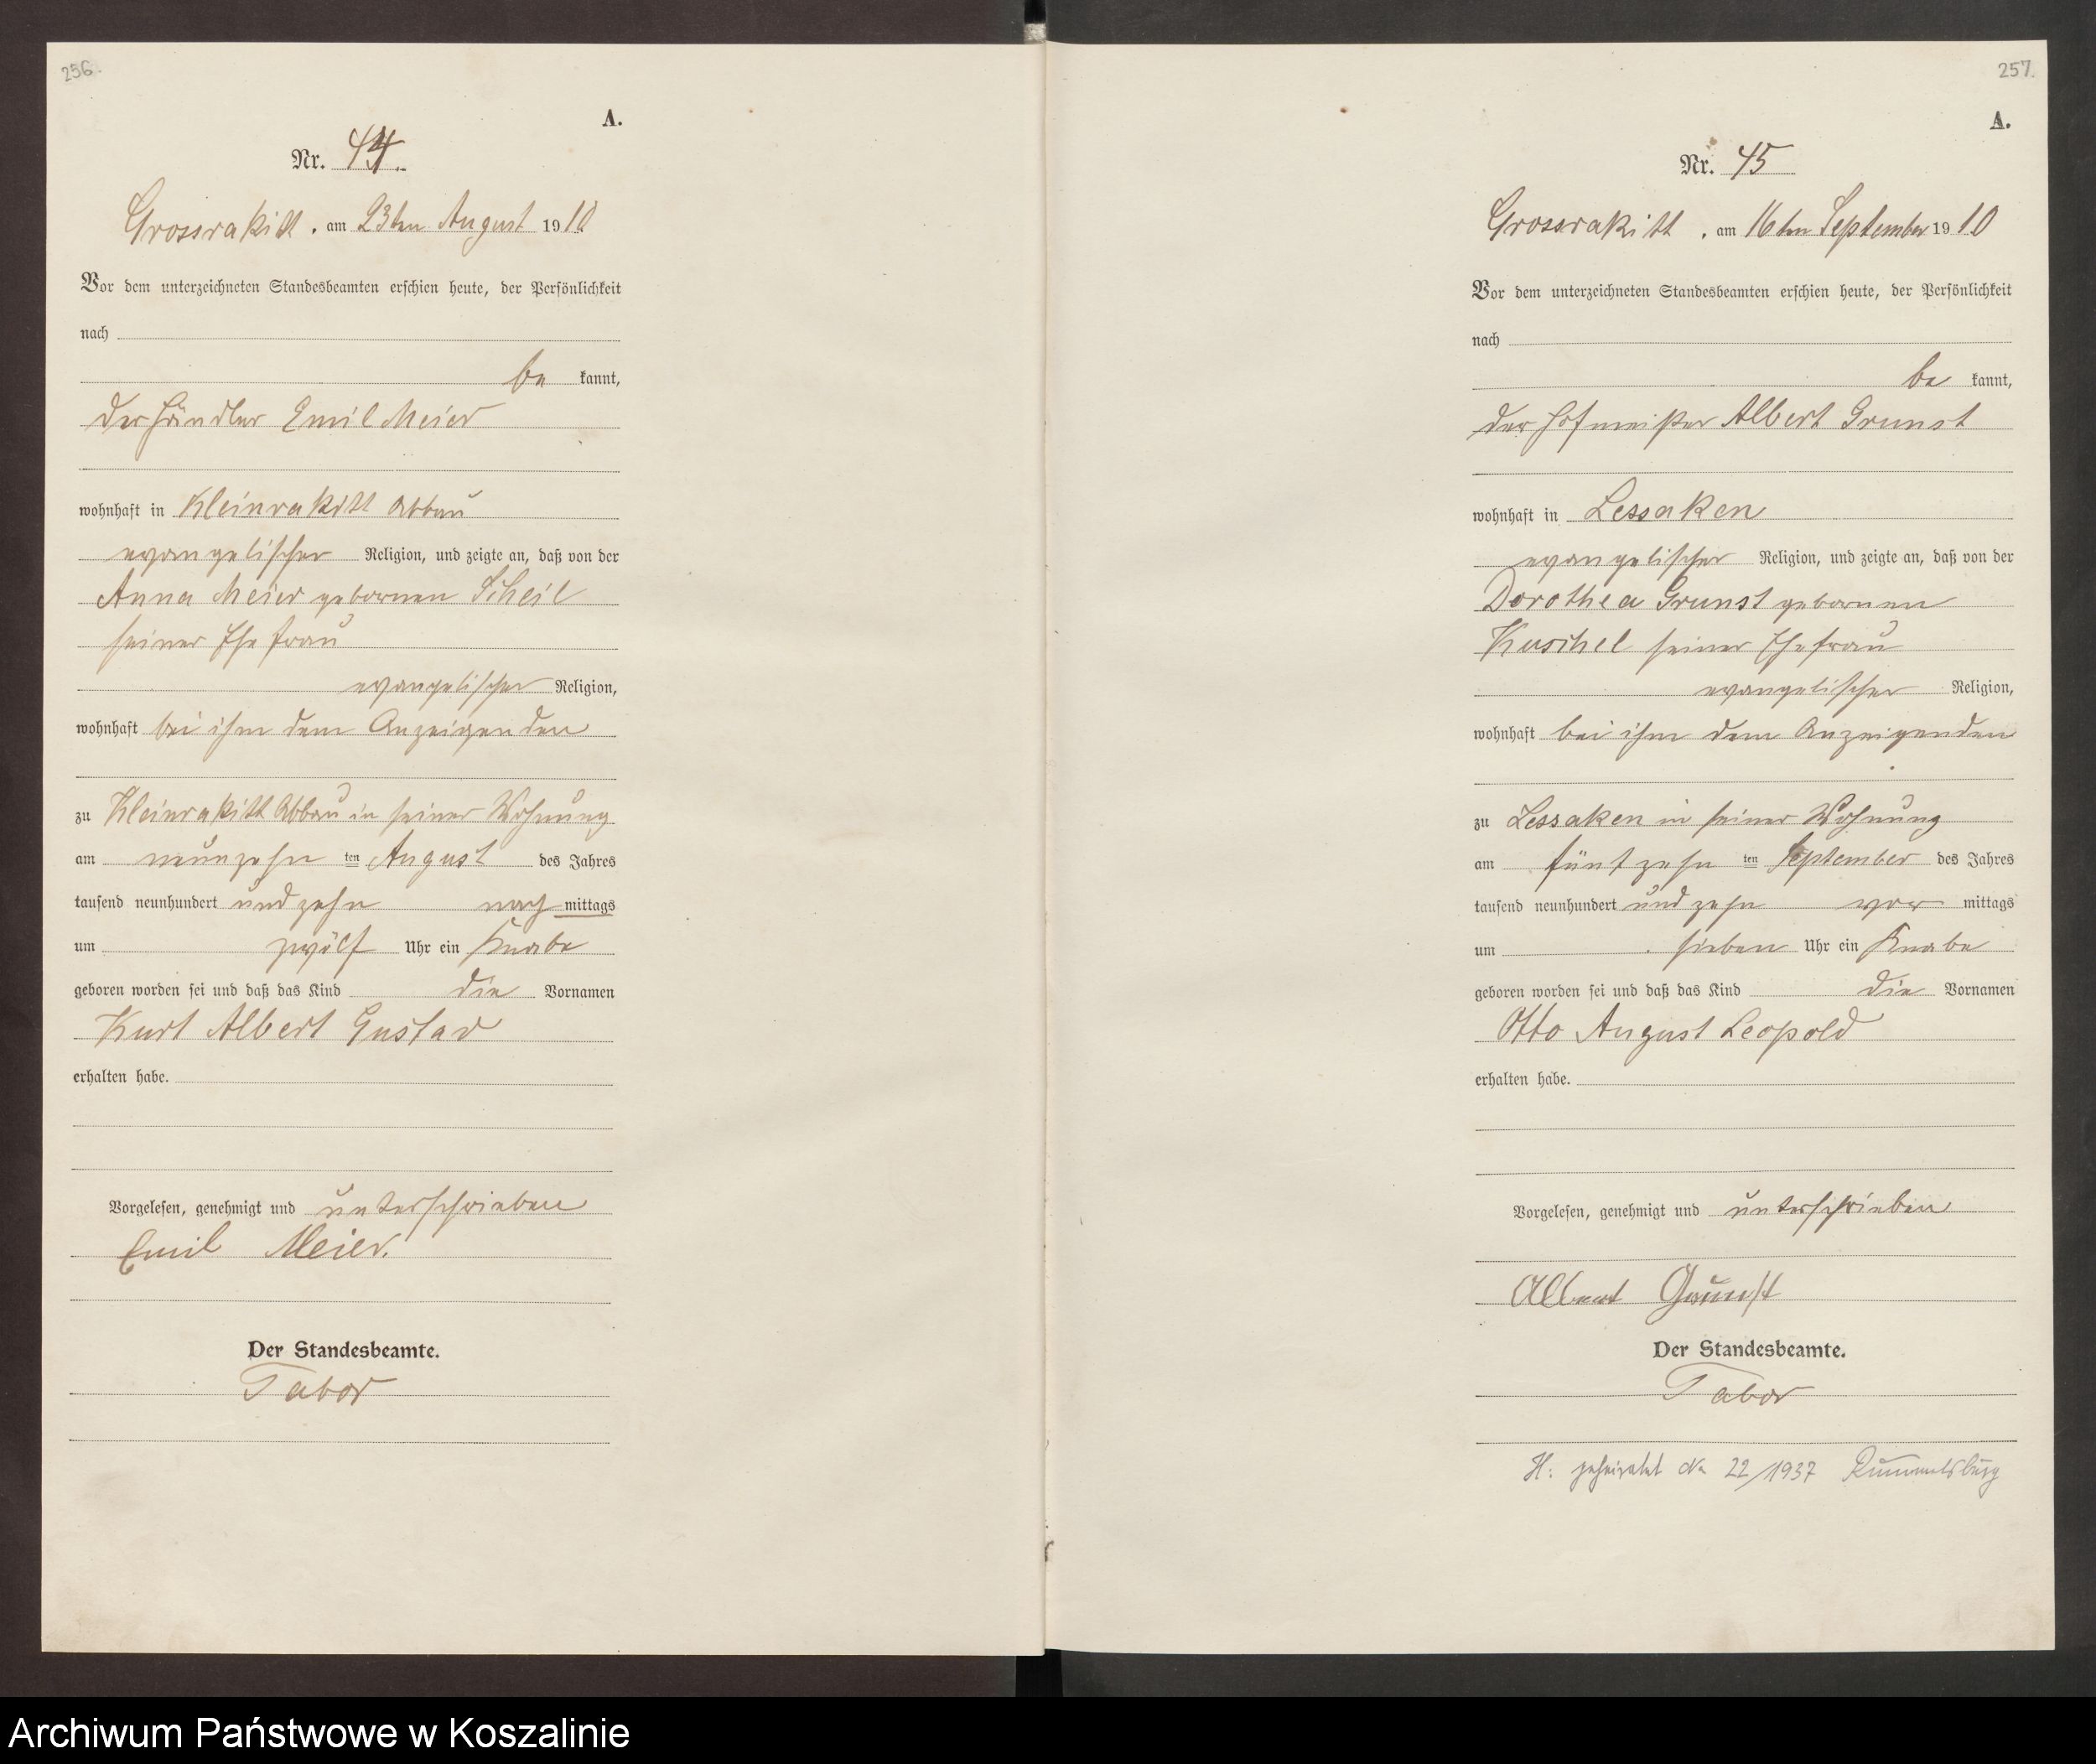 256.
A.
Nr. 44.
Grossrakitt, am 23ten August 1910
Vor dem unterzeichneten Standesbeamten erschien heute, der Persönlichkeit
nach
be kannt,
der Händler Emil Meier
wohnhaft in Kleinrakitt Abbau
evangelischer Religion, und zeigte an, daß von der
Anna Meier gebornen Scheil
seiner Ehefrau
evangelischer Religion,
wohnhaft bei ihm dem Anzeigenden
zu Kleinrakitt Abbau in seiner Wohnung
am neunzehn ten August des Jahres
tausend neunhundert und zehn nach mittags
um zwölf Uhr ein Knabe
geboren worden sei und daß das Kind die Vornamen
Kurt Albert Gustav
erhalten habe.
Vorgelesen, genehmigt und unterschrieben
Emil Meier.
Der Standesbeamte.
Tabor
257.
A.
Nr. 45
Grossrakitt, am 16ten September 1910
Vor dem unterzeichneten Standesbeamten erschien heute, der Persönlichkeit
nach
be kannt,
der Hofmeister Albert Grunst
wohnhaft in Lessaken
evangelischer Religion, und zeigte an, daß von der
Dorothea Grunst gebornen
Kuschel seiner Ehefrau
evangelischer Religion,
wohnhaft bei ihm dem Anzeigenden
zu Lessaken in seiner Wohnung
am fünfzehn ten September des Jahres
tausend neunhundert und zehn vor mittags
um sieben Uhr ein Knabe
geboren worden sei und daß das Kind die Vornamen
Otto August Leopold
erhalten habe.
Vorgelesen, genehmigt und unterschrieben
Albert Grunst
Der Standesbeamte.
Tabor
H: geheiratet No 22/1937 Rummelsburg
Archiwum Państwowe w Koszalinie